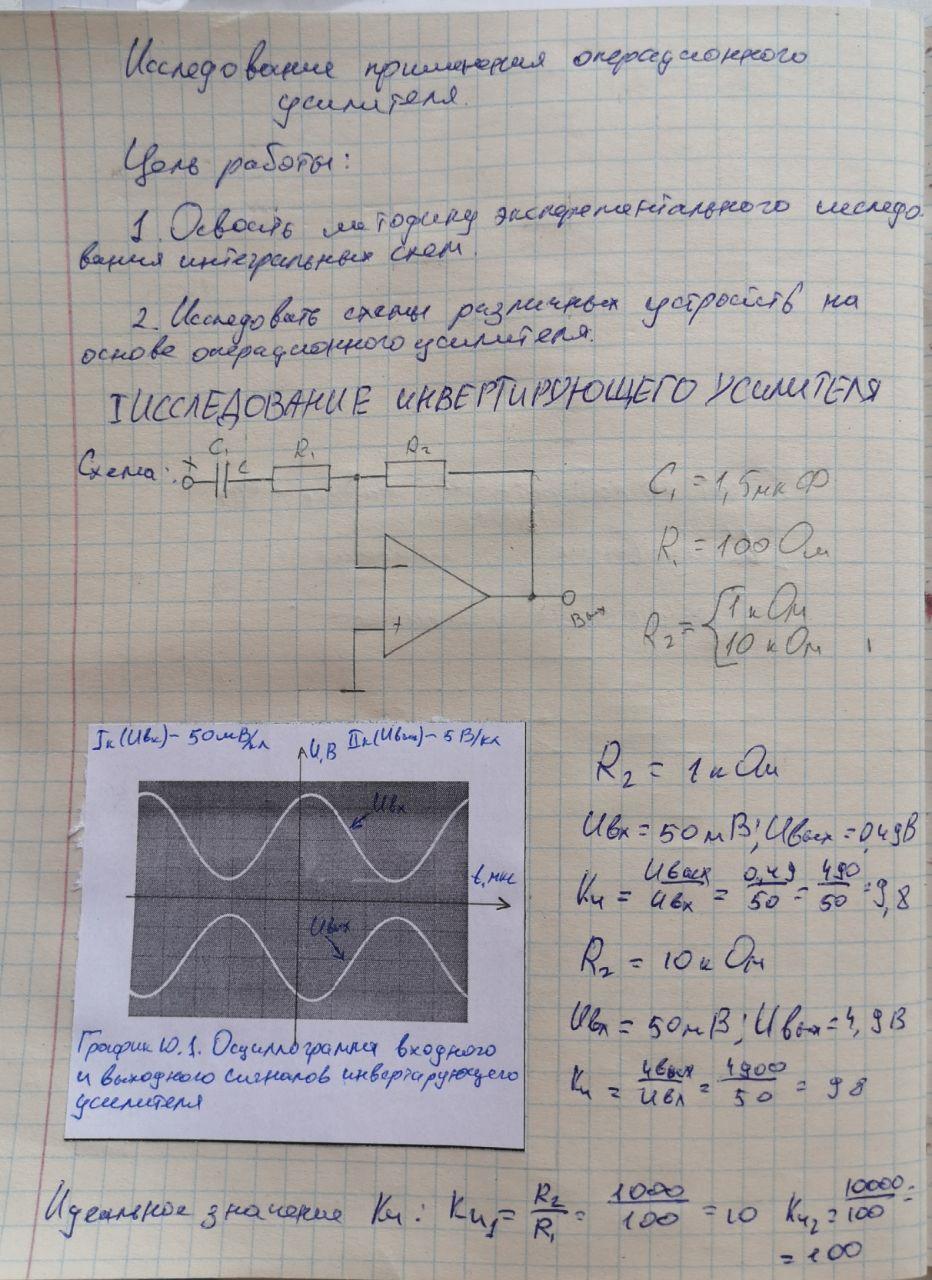 Исследование применения операционного
усилителя.
Цель работы:
1. Освоить методику экспериментального исследо-
вания интегральных схем.
2. Исследовать схемы различных устройств на
основе операционного усилителя.
I ИССЛЕДОВАНИЕ ИНВЕРТИРУЮЩЕГО УСИЛИТЕЛЯ
Схема:
C₁ C R₁ R₂
C₁ = 1,5мкФ
R₁ = 100 Ом
R₂ = { 1 кОм
10 кОм
− +
Вых
Iк(Uвх) – 50мВ/кл U,В IIк(Uвых) – 5В/кл
Uвх
t, мкс
Uвых
График 10.1. Осциллограмма входного
и выходного сигналов инвертирующего
усилителя
R₂ = 1 кОм
Uвх = 50мВ; Uвых = 0,49В
Kи = Uвых/Uвх = 0,49/50 = 490/50 = 9,8
R₂ = 10 кОм
Uвх = 50мВ; Uвых = 4,9В
Kи = Uвых/Uвх = 4900/50 = 98
Идеальное значение Kи: Kи₁ = R₂/R₁ = 1000/100 = 10 Kи₂ = 10000/100 =
= 100